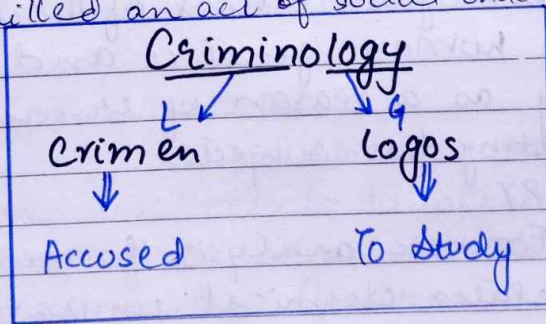 illed an act of social
Criminology
L G
Crimen logos
Accused To Study